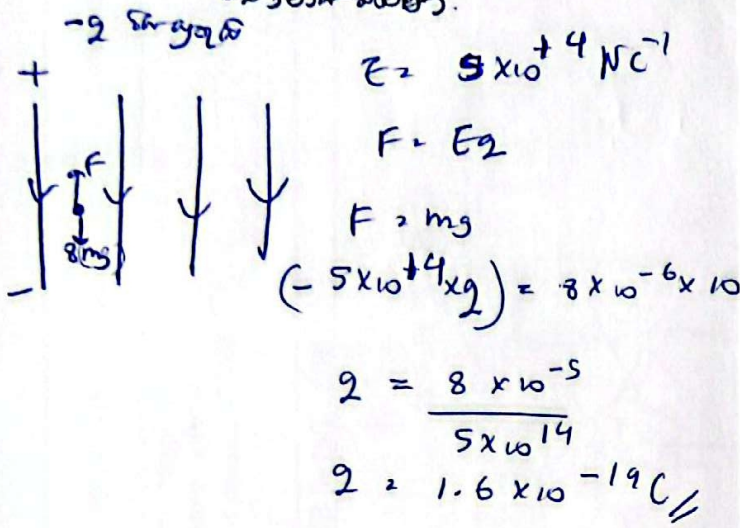 -q
+
E = 5 × 10^{+4} NC^{-1}
F = Eq
F
F = mg
8(mg)
-
(- 5×10^{+4} × q) = 8 × 10^{-6} × 10
q = 8 × 10^{-5}
5 × 10^{14}
q = 1.6 × 10^{-19} C //